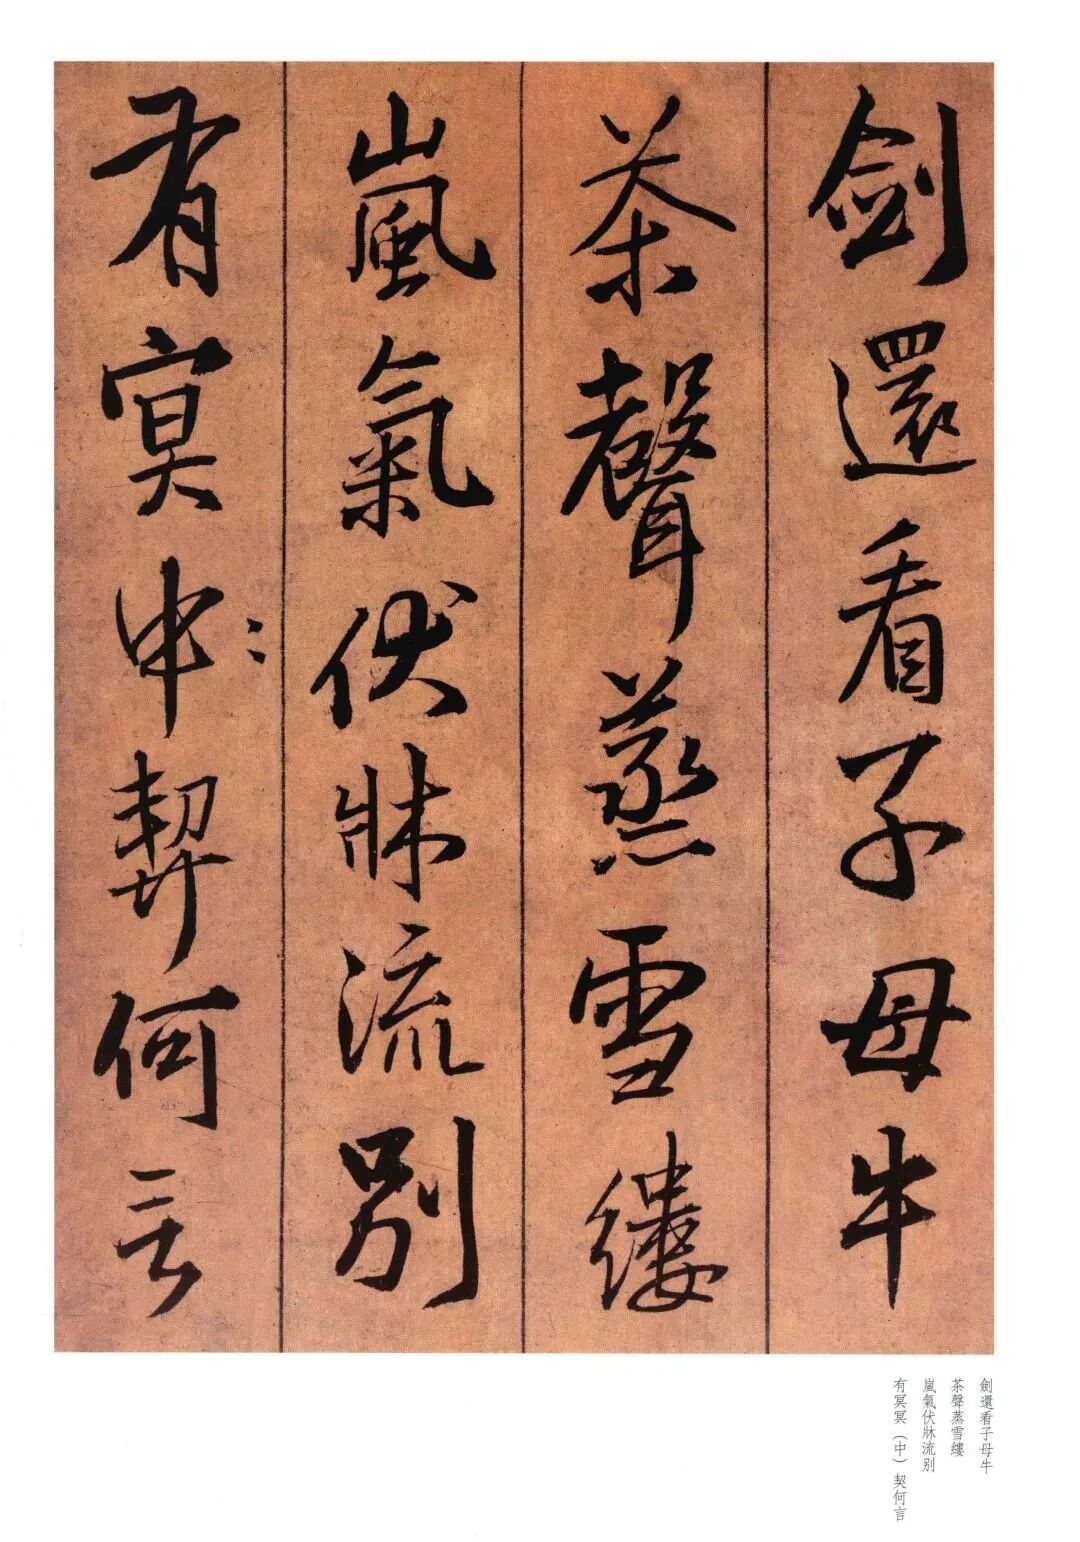 劍還看子母牛
茶聲蒸雪縷
嵐氣伏牀流別
有冥中契何言
劍還看子母牛
茶聲蒸雪縷
嵐氣伏牀流别
有冥冥（中）契何言